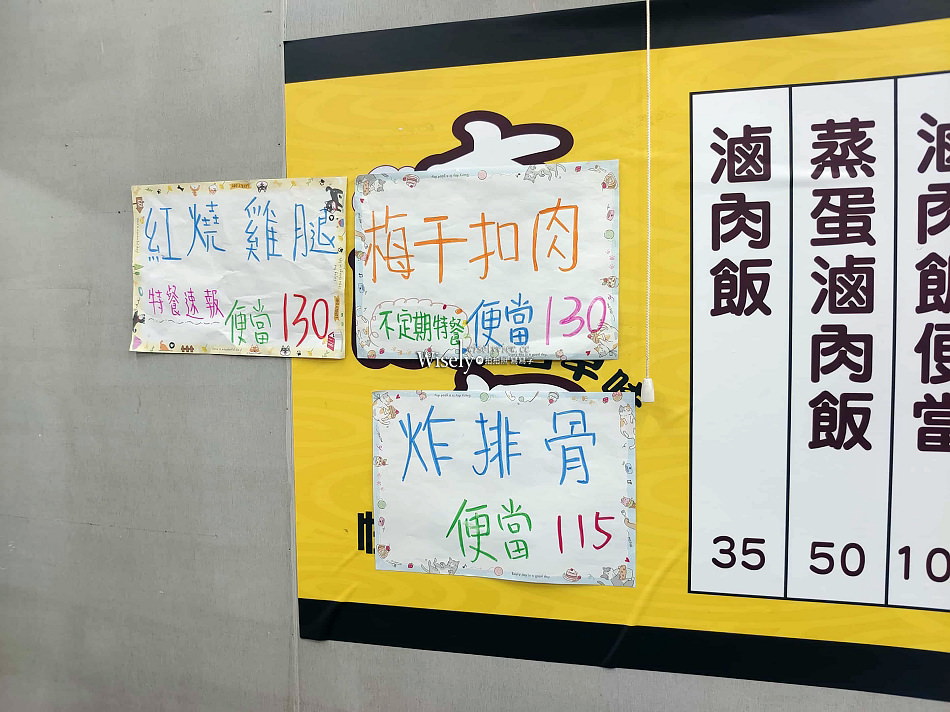 紅燒雞腿
特餐速報
便當 130
梅干扣肉
不定期特餐
便當 130
Wisely
炸排骨
便當 115
滷肉飯
35
蒸蛋滷肉飯
50
滷肉飯便當